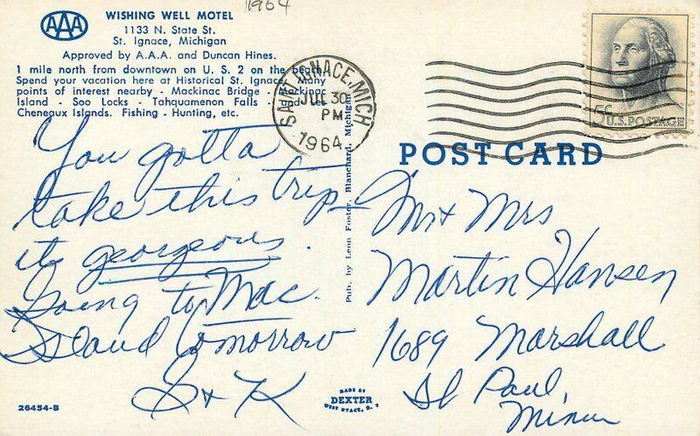 1964
AAA
WISHING WELL MOTEL
1133 N. State St.
St. Ignace, Michigan
Approved by A.A.A. and Duncan Hines.
1 mile north from downtown on U. S. 2 on the beach.
Spend your vacation here at Historical St. Ignace. Many
points of interest nearby - Mackinac Bridge - Mackinac
Island - Soo Locks - Tahquamenon Falls
Cheneaux Islands. Fishing - Hunting, etc.
SAINT IGNACE, MICH.
JUL 30
PM
1964
5¢ U.S. POSTAGE
POST CARD
You gotta
take this trip -
its gorgeous.
Going to Mac.
Island tomorrow
S + K
Pub. by Leon Foster, Blanchard, Michigan
Mr + Mrs
Martin Hansen
1689 Marshall
St Paul,
Minn
26454-B
MADE BY
DEXTER
WEST NYACK, N. Y.